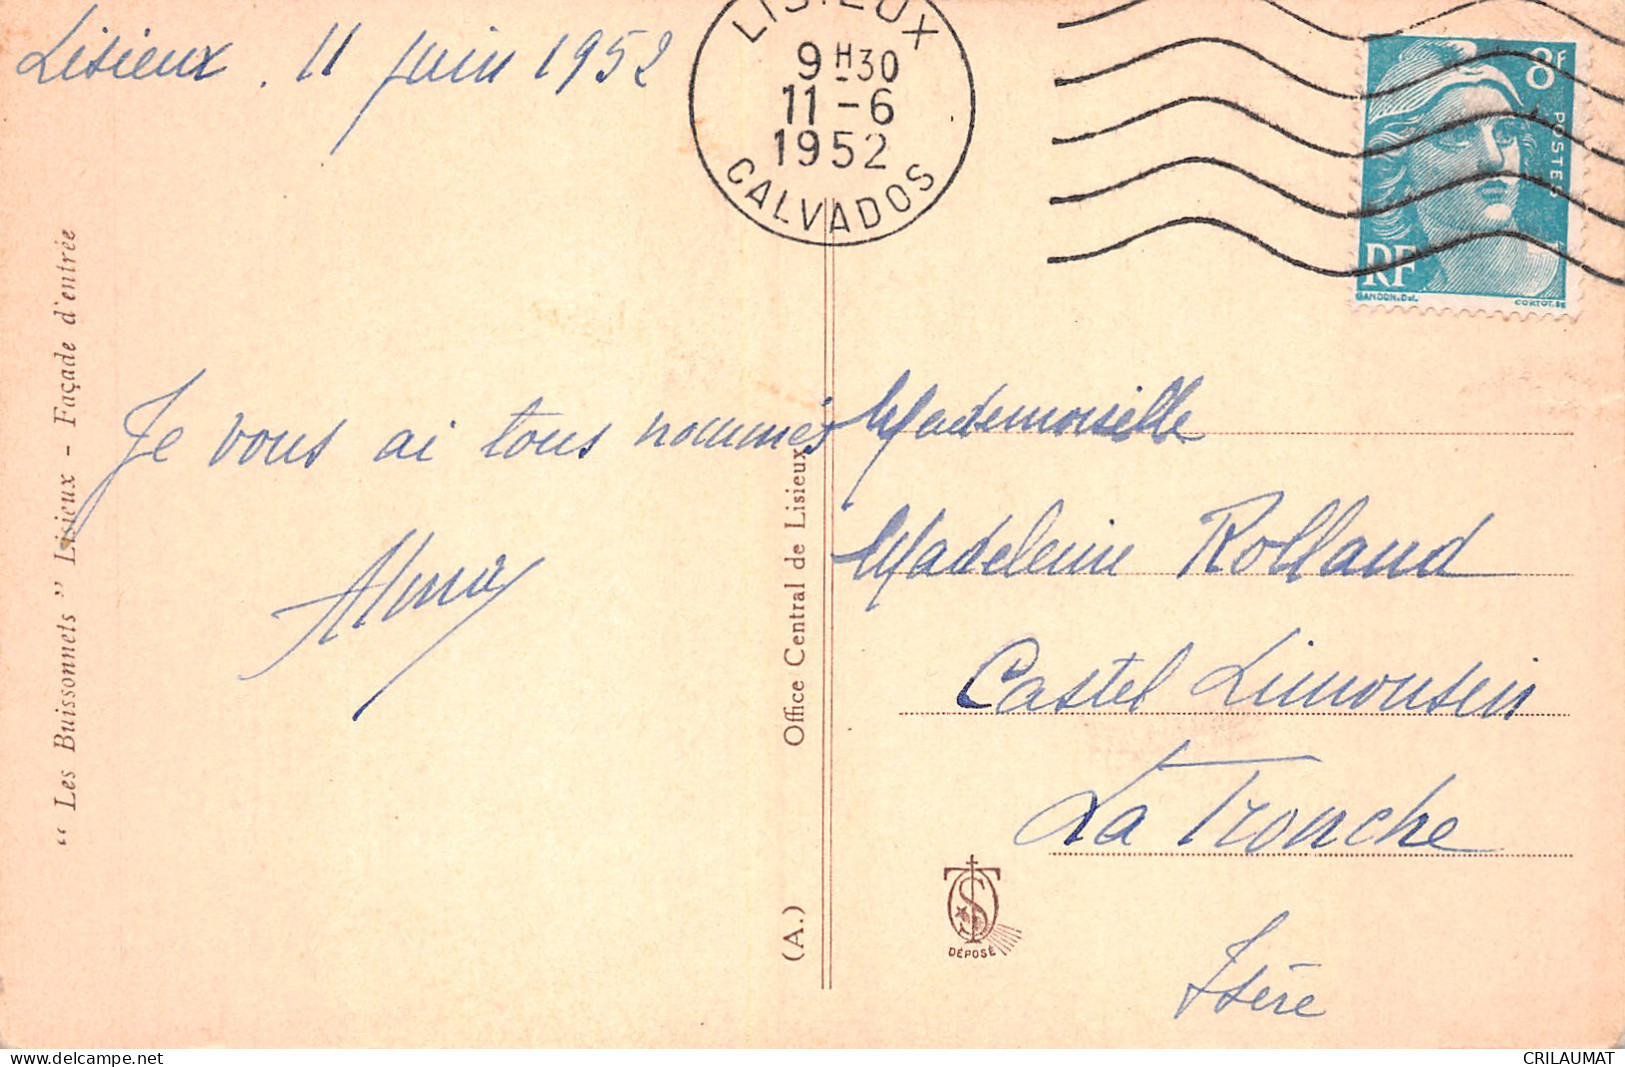 Lisieux . 11 juin 1952
LISIEUX
9H30
11-6
1952
CALVADOS
8F
POSTES
RF
GANDON.Del.
CORTOT.Sc
Je vous ai tous nommés
Mademoiselle
Madeleine Rolland
Castel Limousin
La Tronche
Isère
"Les Buissonnets" Lisieux - Façade d'entrée
Office Central de Lisieux
(A.)
DÉPOSÉ
www.delcampe.net
CRILAUMAT